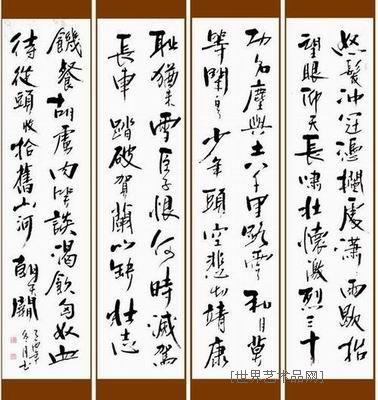 怒髮冲冠憑欄處瀟雨歇抬
望眼仰天長嘯壯懷激烈三十
功名塵與土八千里路雲和月莫
等閑白了少年頭空悲切靖康
耻猶未雪臣子恨何時滅駕
長車踏破賀蘭山缺壯志
饑餐胡虜肉笑談渴飲匈奴血
待從頭收拾舊山河朝天闕
[世界艺术品网]